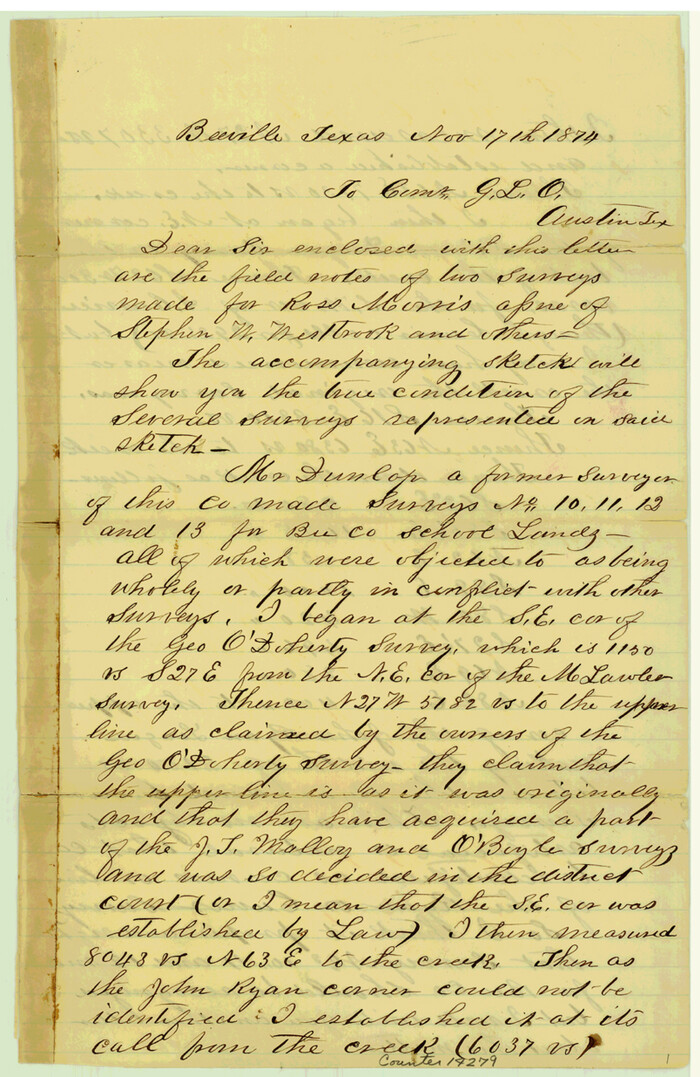 Beeville Texas Nov 17th 1874
To Comr. G.L.O.
Austin Tex
Dear Sir enclosed with this letter
are the field notes of two surveys
made for Ross Morris assne of
Stephen W. Westbrook and others—
The accompanying sketch will
show you the true condition of the
several surveys represented in said
sketch—
Mr Dunlop a former surveyor
of this Co made Surveys No. 10, 11, 12
and 13 for Bee Co school Lands—
all of which were objected to as being
wholely or partly in conflict with other
surveys. I began at the S.E. cor of
the Geo O'Doherty Survey, which is 1150
vs S27E from the N.E. cor of the M Lawler
survey. Thence N27W 5182 vs to the upper
line as claimed by the owners of the
Geo O'Doherty survey— they claim that
the upper line is as it was originally
and that they have acquired a part
of the J.T. Malloy and O'Boyle surveys
and was so decided in the district
court (or I mean that the S.E. cor was
established by Law) I then measured
8043 vs N63E to the creek. Then as
the John Ryan corner could not be
identified: I established it at its
call from the creek (6037 vs)
Counter 14279